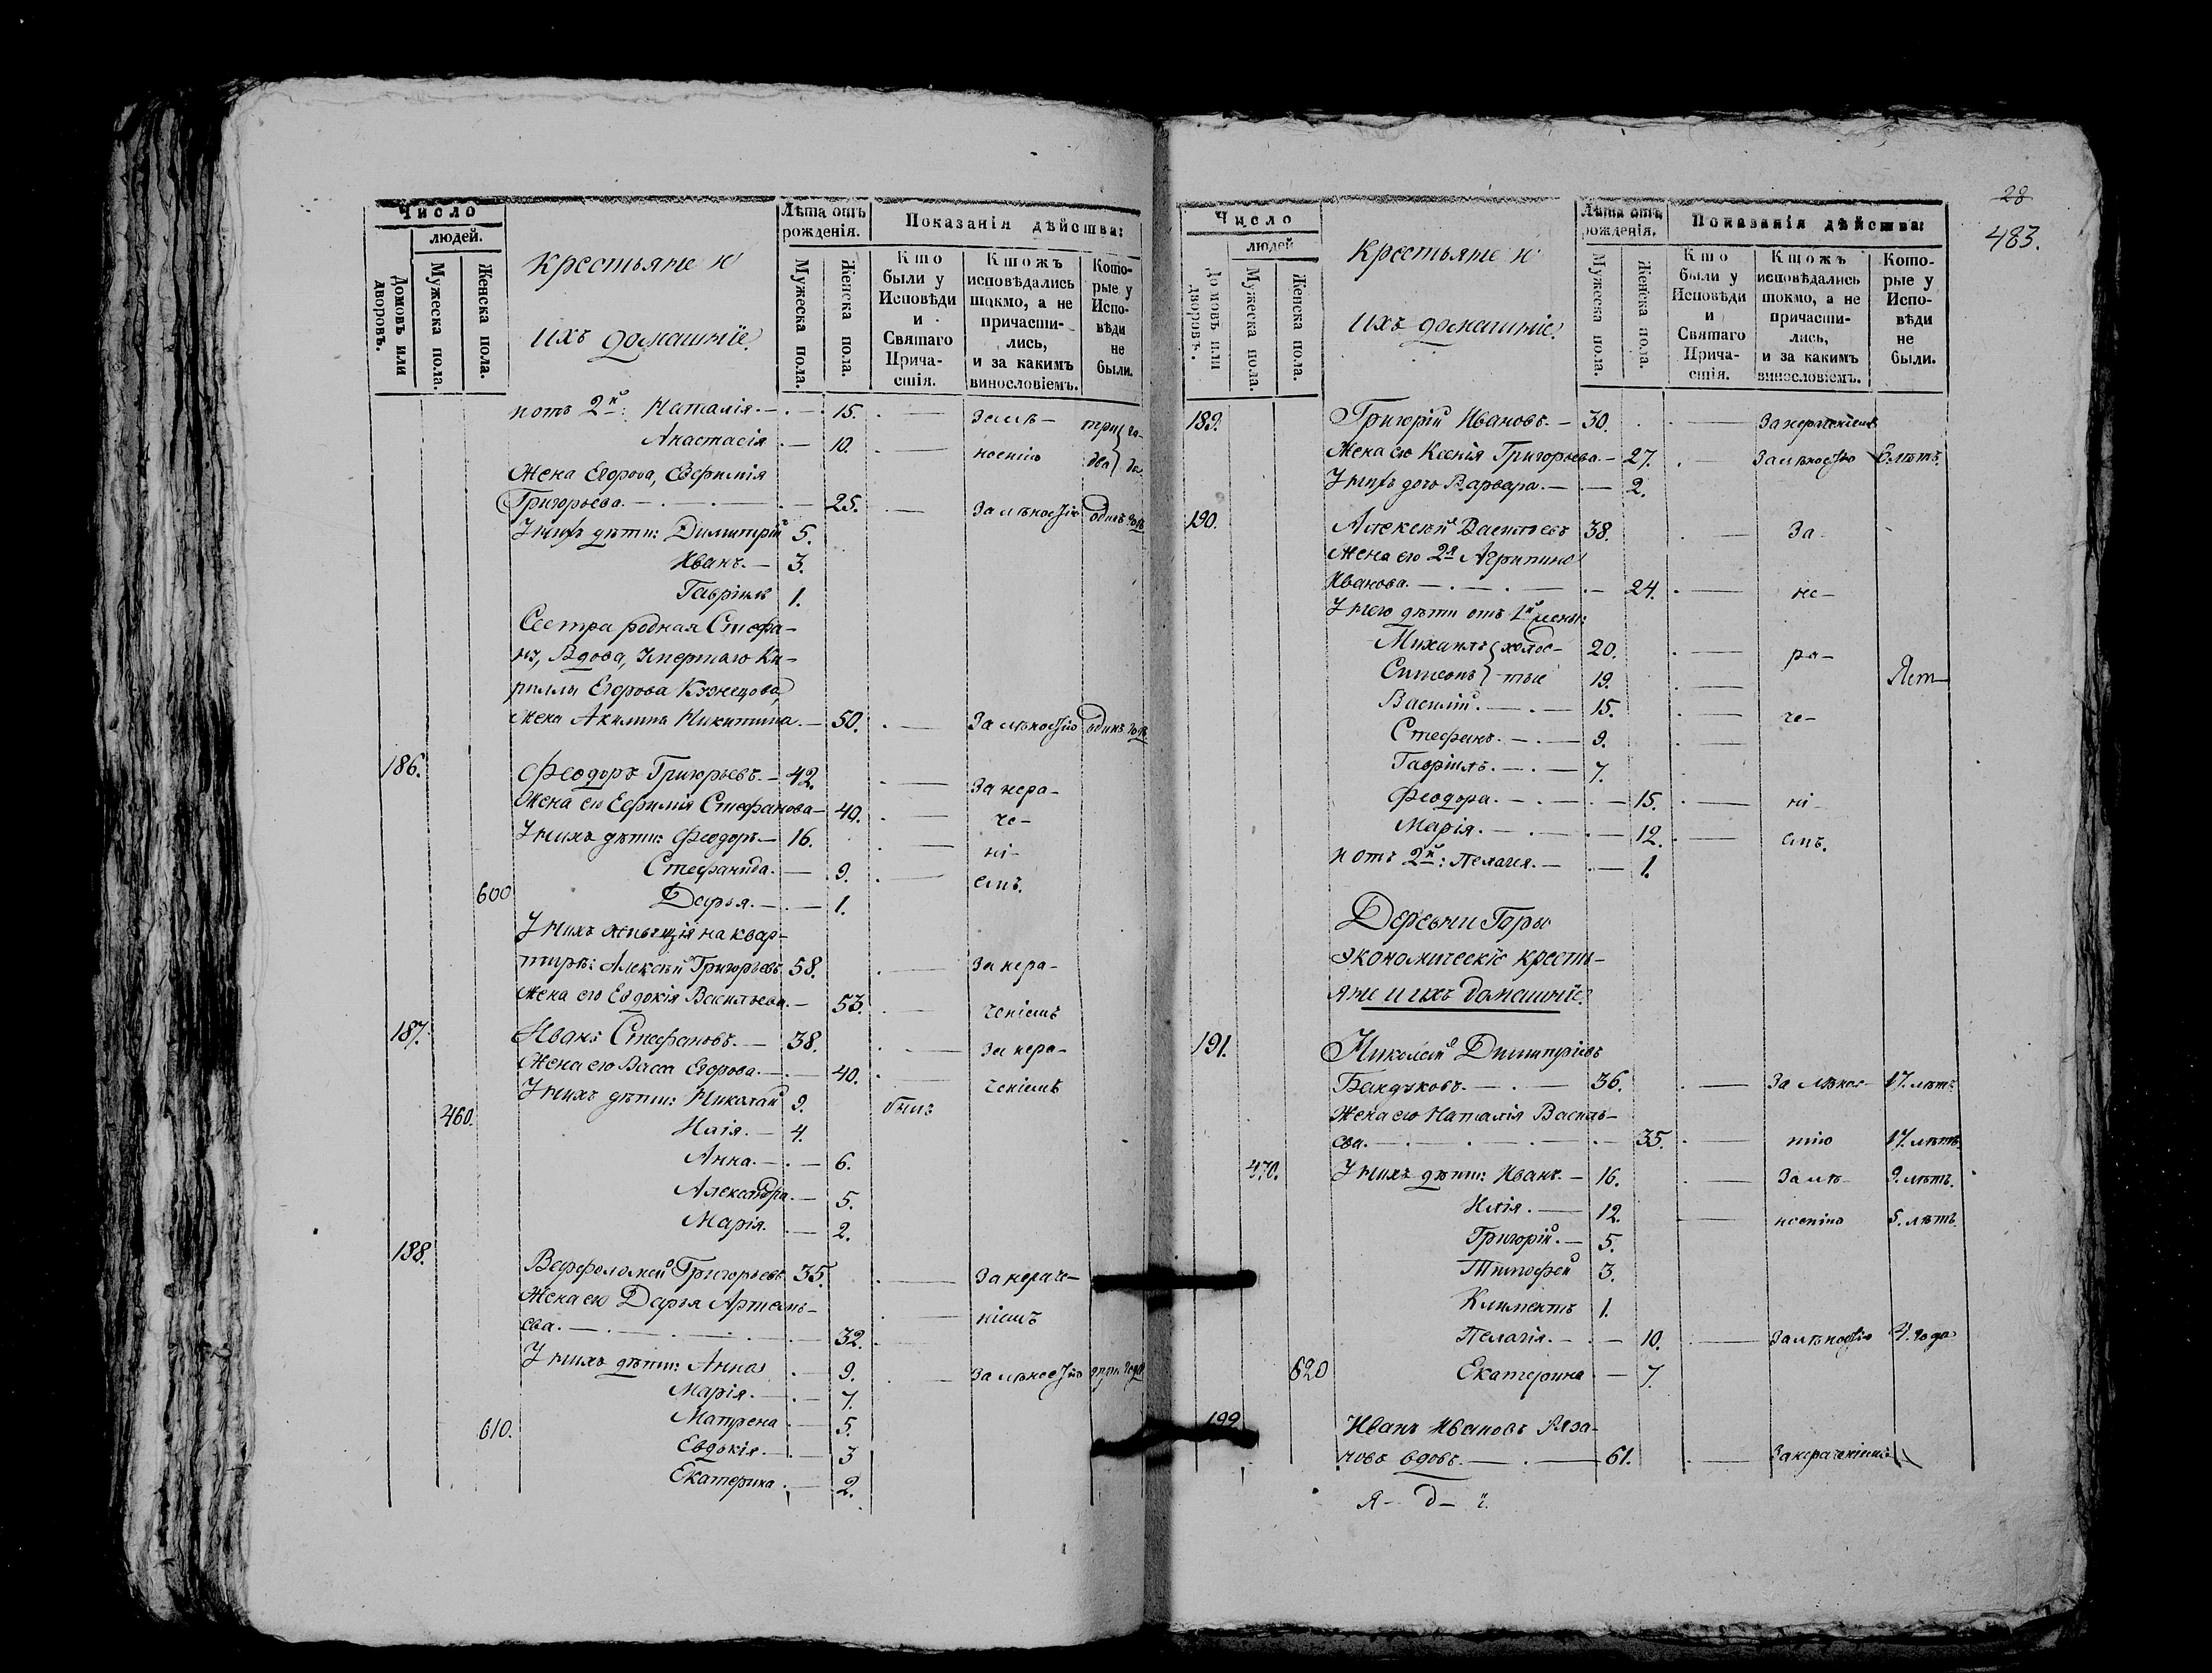 Число
людей.
Домовъ или дворовъ.
Мужеска пола.
Женска пола.
Крестьяне и
ихъ домашніе.
Лѣта отъ рожденія.
Мужеска пола.
Женска пола.
Показанія дѣйства:
Кто были у Исповѣди и Святаго Причастія.
Ктожъ исповѣдались токмо, а не причастились, и за какимъ винословіемъ.
Которые у Исповѣди не были.
и отъ 2й: Наталія. — 15. — За лѣ- три го-
Анастасія — 10. — ностію два да
Жена Егорова, Евфимія
Григорьева. — 25. — За лѣностію одинъ годъ
У нихъ дѣти: Димитрій 5.
Иванъ. — 3.
Гавріилъ 1.
Сестра родная Стефа-
на, Вдова, Умершаго Ки-
риллы Егорова Кузнецова,
жена Акилина Никитина. — 50. — За лѣностію одинъ годъ.
186. Феодоръ Григорьевъ. — 42. — За нера-
Жена его Ефимія Стефанова — 40. — че-
У нихъ дѣти: Феодоръ — 16. — ні-
Стефанида. — 9. — емъ.
600 Дарья. — 1.
У нихъ живущія на квар-
тирѣ: Алексѣй Григорьевъ 58. — За нера-
Жена его Евдокія Васильева. — 53. — ченіемъ
187. Иванъ Стефановъ. — 38. — За нера-
Жена его Васса Егорова. — 40. — ченіемъ
У нихъ дѣти: Николай 9. былъ
460. Илія. — 4.
Анна. — 6.
Александра. — 5.
Марія. — 2.
188. Варфоломей Григорьевъ 35. — За нераче-
Жена его Дарья Артемь-
ева. — 32. — ніемъ
У нихъ дѣти: Анна — 9. — За лѣностію
Марія. — 7.
Матрена — 5.
610. Евдокія. — 3
Екатерина — 2.
28
483.
Число
людей
Домовъ или дворовъ.
Мужеска пола.
Женска пола.
Крестьяне и
ихъ домашніе.
Лѣта отъ рожденія.
Мужеска пола.
Женска пола.
Показанія дѣйства:
Кто были у Исповѣди и Святаго Причастія.
Ктожъ исповѣдались токмо, а не причастились, и за какимъ винословіемъ.
Которые у Исповѣди не были.
189. Григорій Ивановъ. — 30. — За нераченіемъ
Жена его Ксенія Григорьева. — 27. — За лѣностію 6. лѣтъ.
У нихъ дочь Варвара. — 2.
190. Алексѣй Васильевъ 38. — За
Жена его 2я Агрипина
Иванова. — 24. — не-
У него дѣти отъ 1й жены:
Михаилъ холос- 20. — ра-
Симеонъ тые 19. —
Василій. — 15. — че-
Стефанъ. — 9. —
Гавріилъ. — 7.
Феодора. — 15. — ні-
Марія. — 12. — емъ.
и отъ 2й: Пелагея. — 1.
Деревни Горы
экономическіе кресть-
яне и ихъ домашніе.
191. Николай Димитріевъ
Бандуковъ. — 36. — За лѣнос- 17. лѣтъ
Жена его Наталія Василь-
ева. — 35. — тію 17. лѣтъ
470. У нихъ дѣти: Иванъ. — 16. — За лѣ- 9. лѣтъ.
Илія. — 12. — ностію 5. лѣтъ.
Григорій. — 5.
Тимофей 3.
Климентъ 1.
Пелагія. — 10. — За лѣностію 4. года
620 Екатерина — 7.
199 Иванъ Ивановъ
новъ вдовъ. — 61. — За нераченіемъ
я- д- ї.